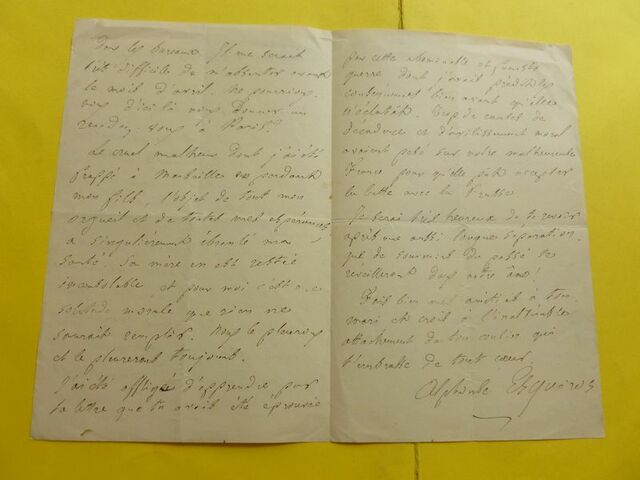 Dans les bureaux. Il me serait
très difficile de m'absenter avant
le mois d'avril. Ne pourrions-
nous d'ici là nous donner un
rendez-vous à Paris?
Le cruel malheur dont j'ai été
frappé à Marseille en perdant
mon fils, l'objet de tout mon
orgueil et de toutes mes espérances
a singulièrement ébranlé ma
santé. Sa mère en est restée
inconsolable et pour moi c'est une
solitude morale que rien ne
saurait remplir. Nous le pleurons
et le pleurerons toujours.
J'ai été affligé d'apprendre par
ta lettre que tu avais été éprouvée
par cette abominable et funeste
guerre dont j'avais prédit les
conséquences bien avant qu'elle
n'éclatât. Trop de causes de
décadence et d'avilissement moral
avaient pesé sur notre malheureuse
France pour qu'elle pût accepter
la lutte avec la Prusse.
Je serai très heureux de te revoir
après une aussi longue séparation.
que de souvenirs du passé se
réveilleront dans notre âme!
Fais bien mes amitiés à ton
mari et crois à l'inaltérable
attachement de ton cousin qui
t'embrasse de tout cœur.
Alphonse Esquiros